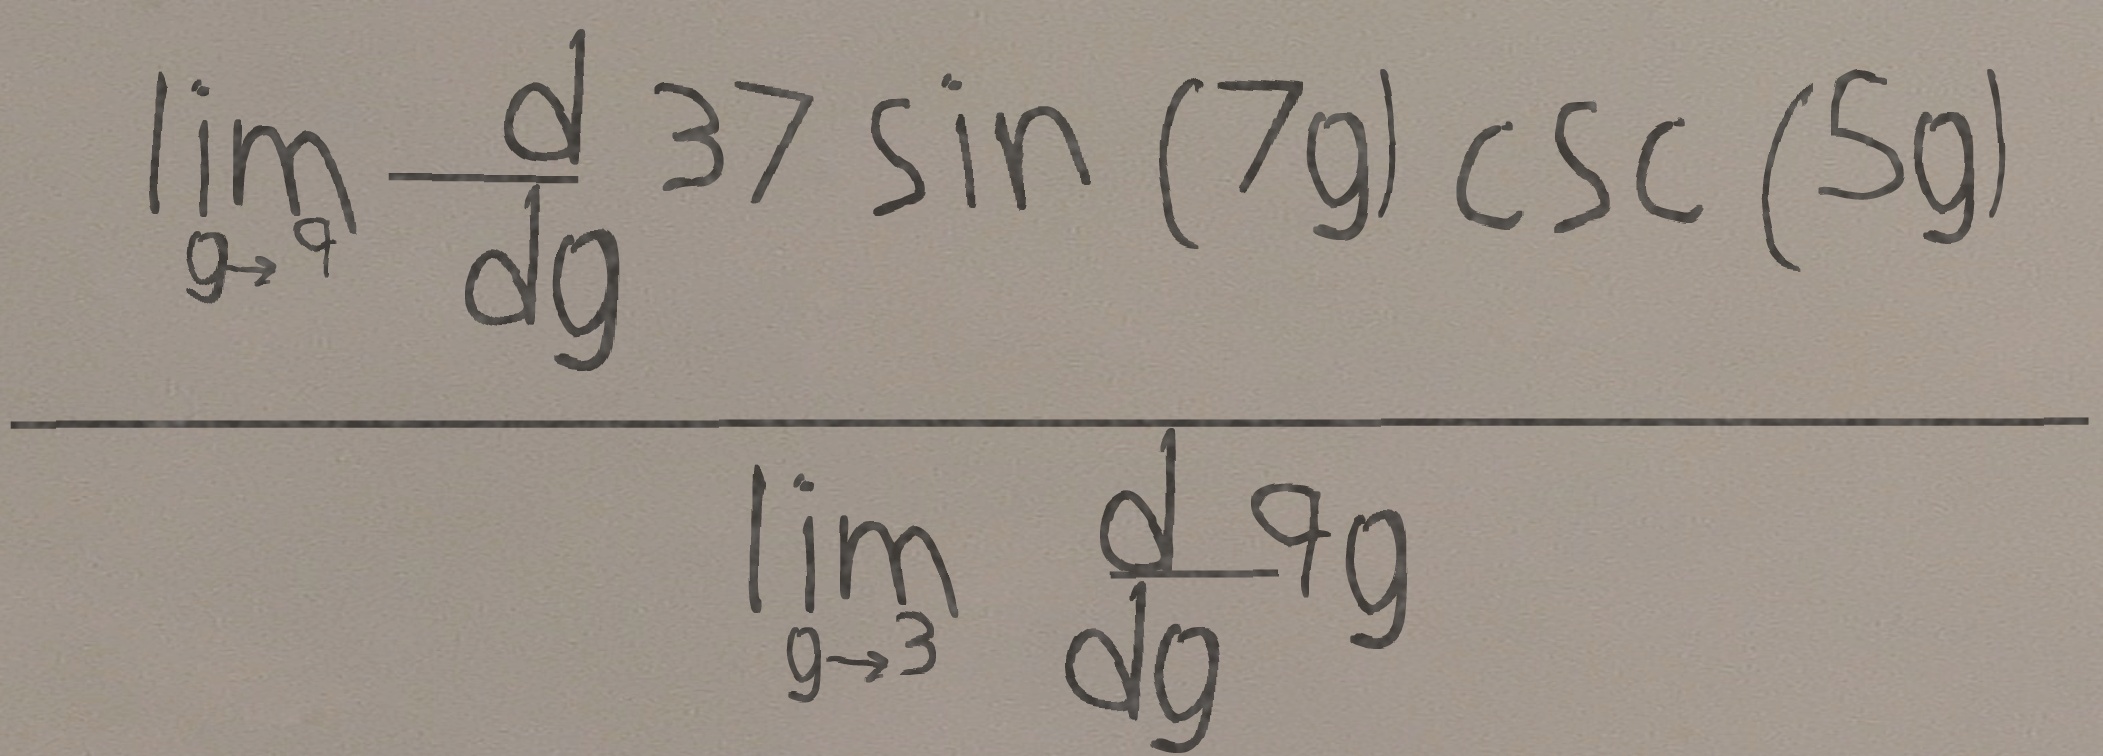 \frac{\lim_{g \to 9} \frac{d}{dg} 37 \sin (7g) \csc (5g)}{\lim_{g \to 3} \frac{d}{dg} 9g}